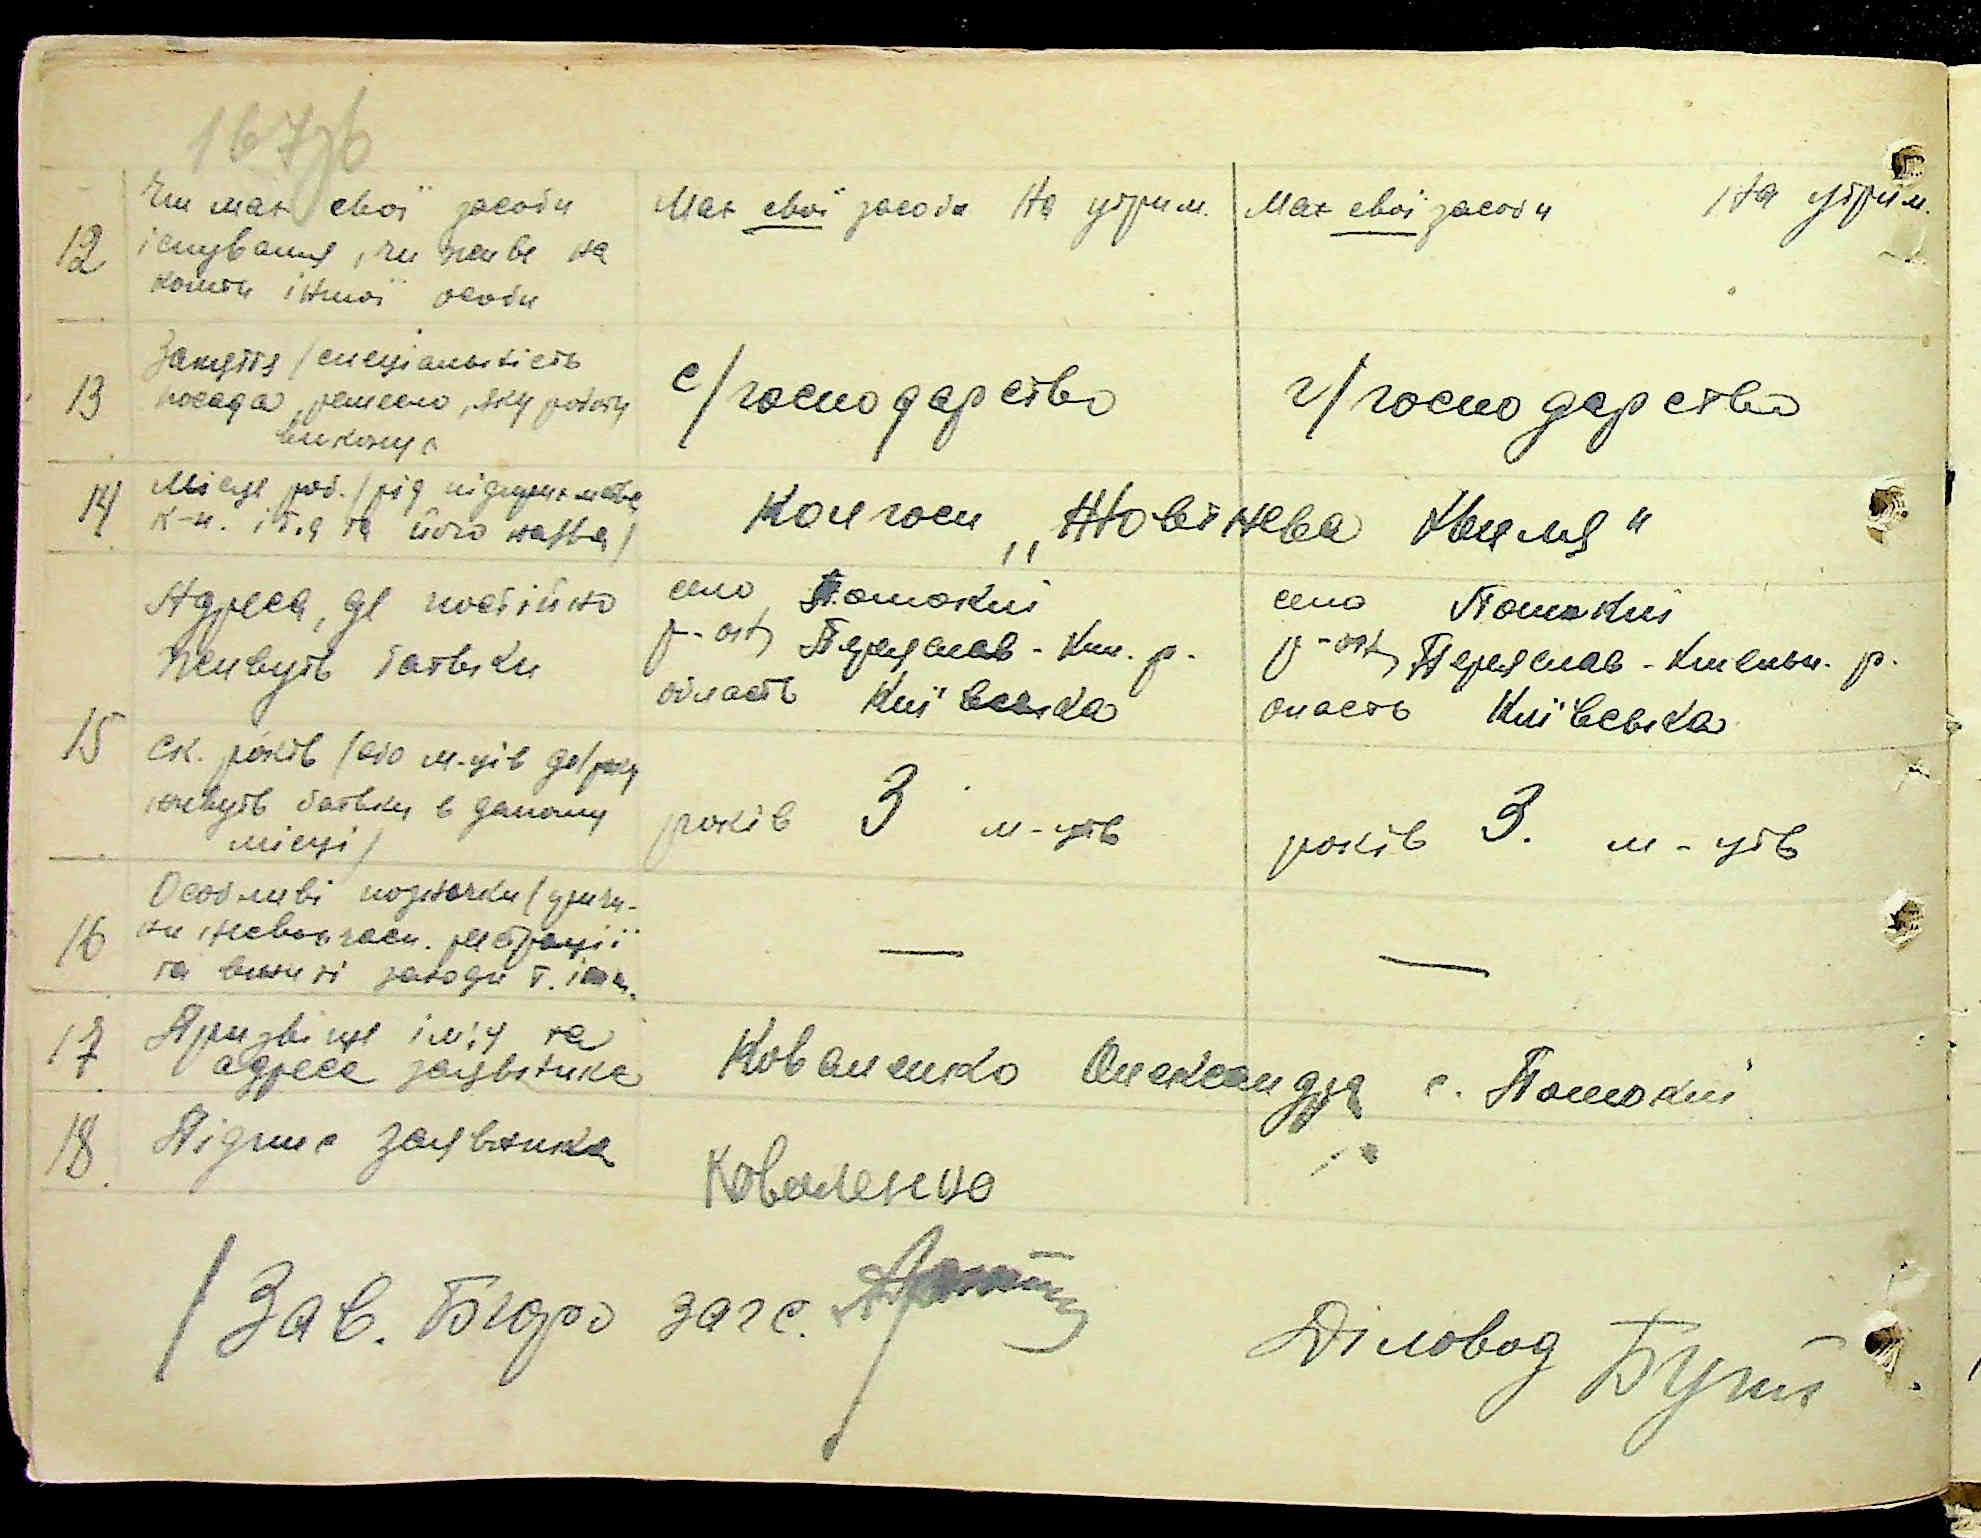 167зв
12 Чи має свої засоби
існування, чи живе на
кошти іншої особи
Має свої засоби На утрим.
Має свої засоби На утрим.
13 Заняття / спеціальність
посада, ремесло, яку роботу
виконує
с/господарство
с/господарство
14 Місце роб. / рід підприємства
к-и. і т.д та його назва /
Колгосп „Жовтнева Хвиля"
15 Адреса, де постійно
живуть батьки
село Помоклі
р-ону Переяслав-Хм. р.
область Київська
село Помоклі
р-ону Переяслав-Хмельн. р.
оласть Київська
ск. років / або м-ців до/року
живуть батьки в даному
місці /
років 3 м-ців
років 3. м-ців
16 Особливі позначки / причи-
ни несвоєчасн. реєстрації
та вжиті заходи т. інш.
—
—
17 Призвіще ім'я та
адреса заявника
Коваленко Олександра с. Помоклі
18. Підпис заявника
Коваленко
/ Зав. Бюро загс.
Діловод